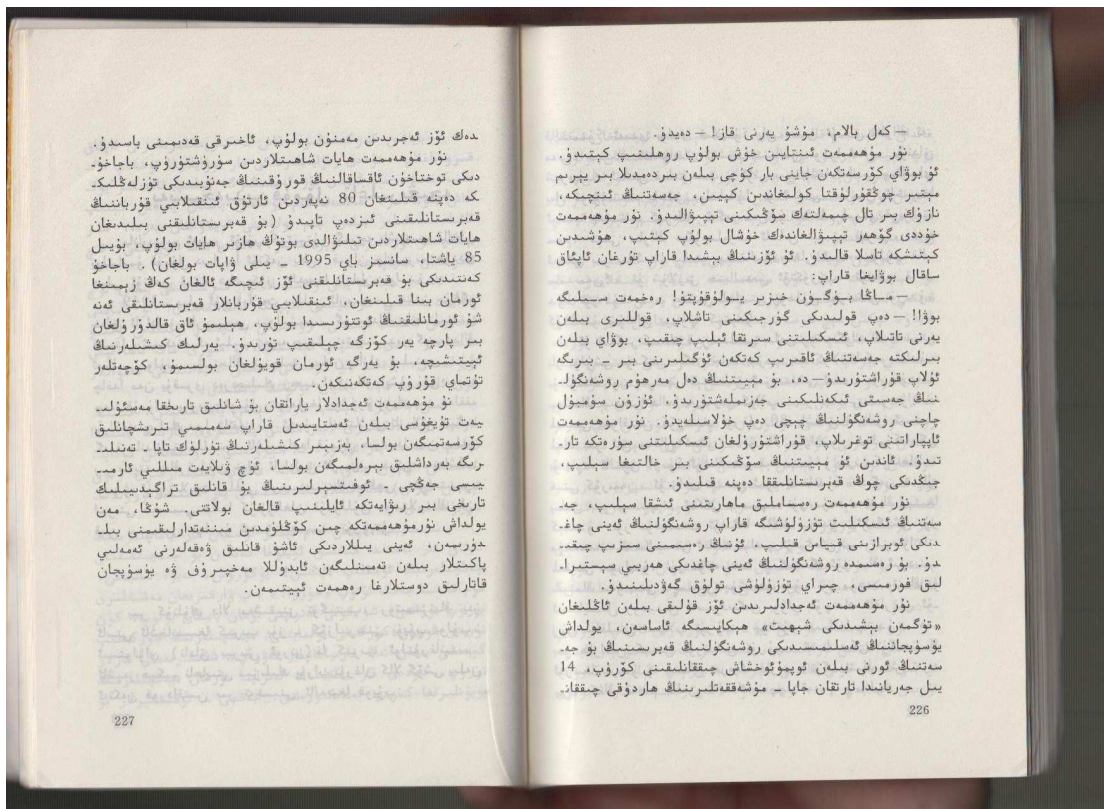 — كەل بالام، مۇشۇ يەرنى قاز! — دەيدۇ.
نۇر مۇھەممەت ئىنتايىن خۇش بولۇپ روھلىنىپ كېتىدۇ.
ئۇ بوۋاي كۆرسەتكەن جاينى بار كۈچى بىلەن بىردەمدىلا بىر يېرىم
مېتىر چوڭقۇرلۇقتا كولىغاندىن كېيىن، جەسەتنىڭ ئىنچىكە،
نازۇك بىر تال چىمەلتەك سۆڭىكىنى تېپىۋالىدۇ. نۇر مۇھەممەت
خۇددى گۆھەر تېپىۋالغاندەك خۇشال بولۇپ كېتىپ، ھۇشىدىن
كېتىشكە تاسلا قالىدۇ. ئۇ ئۆزىنىڭ بېشىدا قاراپ تۇرغان ئاپئاق
ساقال بوۋايغا قاراپ:
— ماڭا بۈگۈن خىزىر يولۇقۇپتۇ! رەخمەت سىلىگە
بوۋا! — دەپ قولىدىكى گۈرجىكىنى تاشلاپ، قوللىرى بىلەن
يەرنى تاتىلاپ، ئىسكىلىتنى سىرتقا ئېلىپ چىقىپ، بوۋاي بىلەن
بىرلىكتە جەسەتنىڭ ئاقىرىپ كەتكەن ئۈگىلىرىنى بىر ـ بىرىگە
ئۇلاپ قۇراشتۇرىدۇ — دە، بۇ مېيىتنىڭ دەل مەرھۇم روشەنگۈل‍ـ
نىڭ جەسىتى ئىكەنلىكىنى جەزىملەشتۈرىدۇ. ئۇزۇن سۇمبۇل
چاچنى روشەنگۈلنىڭ چېچى دەپ خۇلاسىلەيدۇ. نۇر مۇھەممەت
ئاپپاراتىنى توغرىلاپ، قۇراشتۇرۇلغان ئىسكىلىتنى سۈرەتكە تار‍ـ
تىدۇ. ئاندىن ئۇ مېيىتنىڭ سۆڭىكىنى بىر خالتىغا سېلىپ،
جىڭدىكى چوڭ قەبرىستانلىققا دەپنە قىلىدۇ.
نۇر مۇھەممەت رەسساملىق ماھارىتىنى ئىشقا سېلىپ، جە‍ـ
سەتنىڭ ئىسكىلىت تۈزۈلۈشىگە قاراپ روشەنگۈلنىڭ ئەينى چاغ‍ـ
دىكى ئوبرازىنى قىياس قىلىپ، ئۇنىڭ رەسىمىنى سىزىپ چىقى‍ـ
دۇ. بۇ رەسىمدە روشەنگۈلنىڭ ئەينى چاغدىكى ھەربىي سېستىرا‍ـ
لىق فورمىسى، چىراي تۈزۈلۈشى تولۇق گەۋدىلىنىدۇ.
نۇر مۇھەممەت ئەجدادلىرىدىن ئۆز قۇلىقى بىلەن ئاڭلىغان
«تۈگمەن بېشىدىكى شېھىت» ھېكايىسىگە ئاساسەن، يولداش
يۈسۈپجاننىڭ ئەسلىمىسىدىكى روشەنگۈلنىڭ قەبرىسىنىڭ بۇ جە‍ـ
سەتنىڭ ئورنى بىلەن ئوپمۇئوخشاش چىققانلىقىنى كۆرۈپ، 14
يىل جەريانىدا تارتقان جاپا ـ مۇشەققەتلىرىنىڭ ھاردۇقى چىققان‍ـ
226
دەك ئۆز ئەجرىدىن مەمنۇن بولۇپ، ئاخىرقى قەدىمىنى باسىدۇ.
نۇر مۇھەممەت ھايات شاھىتلاردىن سۈرۈشتۈرۈپ، باجاخۇ‍ـ
دىكى توختاخۇن ئاقساقالنىڭ قورۇقىنىڭ جەنۇبىدىكى تۈزلەڭلىك‍ـ
كە دەپنە قىلىنغان 80 نەپەردىن ئارتۇق ئىنقىلابىي قۇربانىنىڭ
قەبرىستانلىقىنى ئىزدەپ تاپىدۇ (بۇ قەبرىستانلىقنى بىلىدىغان
ھايات شاھىتلاردىن تىلىۋالدى بوتۇڭ ھازىر ھايات بولۇپ، بۇيىل
85 ياشتا، سانسىز باي 1995 ـ يىلى ۋاپات بولغان). باجاخۇ
كەنتىدىكى بۇ قەبرىستانلىقنى ئۆز ئىچىگە ئالغان كەڭ زېمىنغا
ئورمان بىنا قىلىنغان، ئىنقىلابىي قۇربانلار قەبرىستانلىقى ئەنە
شۇ ئورمانلىقنىڭ ئوتتۇرىسىدا بولۇپ، ھېلىمۇ ئاق قالدۇرۇلغان
بىر پارچە يەر كۆزگە چېلىقىپ تۇرىدۇ. يەرلىك كىشىلەرنىڭ
ئېيتىشىچە، بۇ يەرگە ئورمان قويۇلغان بولسىمۇ، كۆچەتلەر
تۇتماي قۇرۇپ كەتكەنىكەن.
نۇر مۇھەممەت ئەجدادلار ياراتقان بۇ شانلىق تارىخقا مەسئۇلى‍ـ
يەت تۇيغۇسى بىلەن ئەستايىدىل قاراپ سەمىمىي تىرىشچانلىق
كۆرسەتمىگەن بولسا، بەزىبىر كىشىلەرنىڭ تۈرلۈك تاپا ـ تەنىلى‍ـ
رىگە بەرداشلىق بېرەلمىگەن بولسا، ئۈچ ۋىلايەت مىللىي ئارمى‍ـ
يىسى جەڭچى ـ ئوفىتسېرلىرىنىڭ بۇ قانلىق تراگېدىيىلىك
تارىخى بىر رىۋايەتكە ئايلىنىپ قالغان بولاتتى. شۇڭا، مەن
يولداش نۇرمۇھەممەتكە چىن كۆڭلۈمدىن مىننەتدارلىقىمنى بىل‍ـ
دۈرىمەن، ئەينى يىللاردىكى ئاشۇ قانلىق ۋەقەلەرنى ئەمەلىي
پاكىتلار بىلەن تەمىنلىگەن ئابدۇللا مەخپىرۇف ۋە يۈسۈپجان
قاتارلىق دوستلارغا رەھمەت ئېيتىمەن.
227